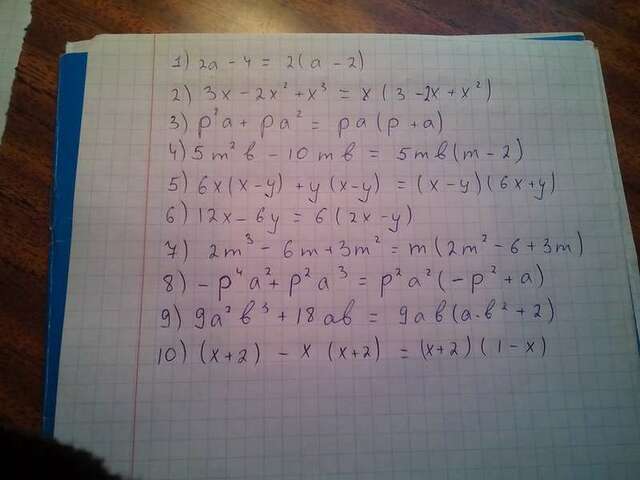 1) 2a - 4 = 2(a - 2)
2) 3x - 2x² + x³ = x(3 - 2x + x²)
3) p²a + pa² = pa(p + a)
4) 5m²b - 10mb = 5mb(m - 2)
5) 6x(x - y) + y(x - y) = (x - y)(6x + y)
6) 12x - 6y = 6(2x - y)
7) 2m³ - 6m + 3m² = m(2m² - 6 + 3m)
8) -p⁴a² + p²a³ = p²a²(-p² + a)
9) 9a²b³ + 18ab = 9ab(a·b² + 2)
10) (x+2) - x (x+2) = (x+2)(1 - x)